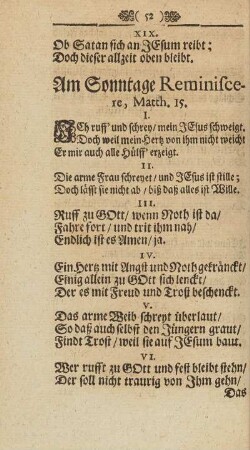 ( 52 )
XIX.
Ob Satan sich an JEsum reibt;
Doch dieser allzeit oben bleibt.
Am Sonntage Reminisce-
re, Matth. 15.
I.
ICh ruff und schrey / mein JEsus schweigt.
Doch weil mein Hertz von ihm nicht weicht
Er mir auch alle Hülff' erzeigt.
II.
Die arme Frau schreyet / und JEsus ist stille;
Doch lässt sie nicht ab / biß daß alles ist Wille.
III.
Ruff zu GOtt / wenn Noth ist da /
Fahre fort / und trit ihm nah /
Endlich ist es Amen / ja.
IV.
Ein Hertz mit Angst und Noth gekränckt /
Einig allein zu GOtt sich lenckt /
Der es mit Freud und Trost beschenckt.
V.
Das arme Weib schreyt überlaut /
So daß auch selbst den Jüngern graut /
Findt Trost / weil sie auf JEsum baut.
VI.
Wer rufft zu GOtt und fest bleibt stehn /
Der soll nicht traurig von Ihm gehn /
Das